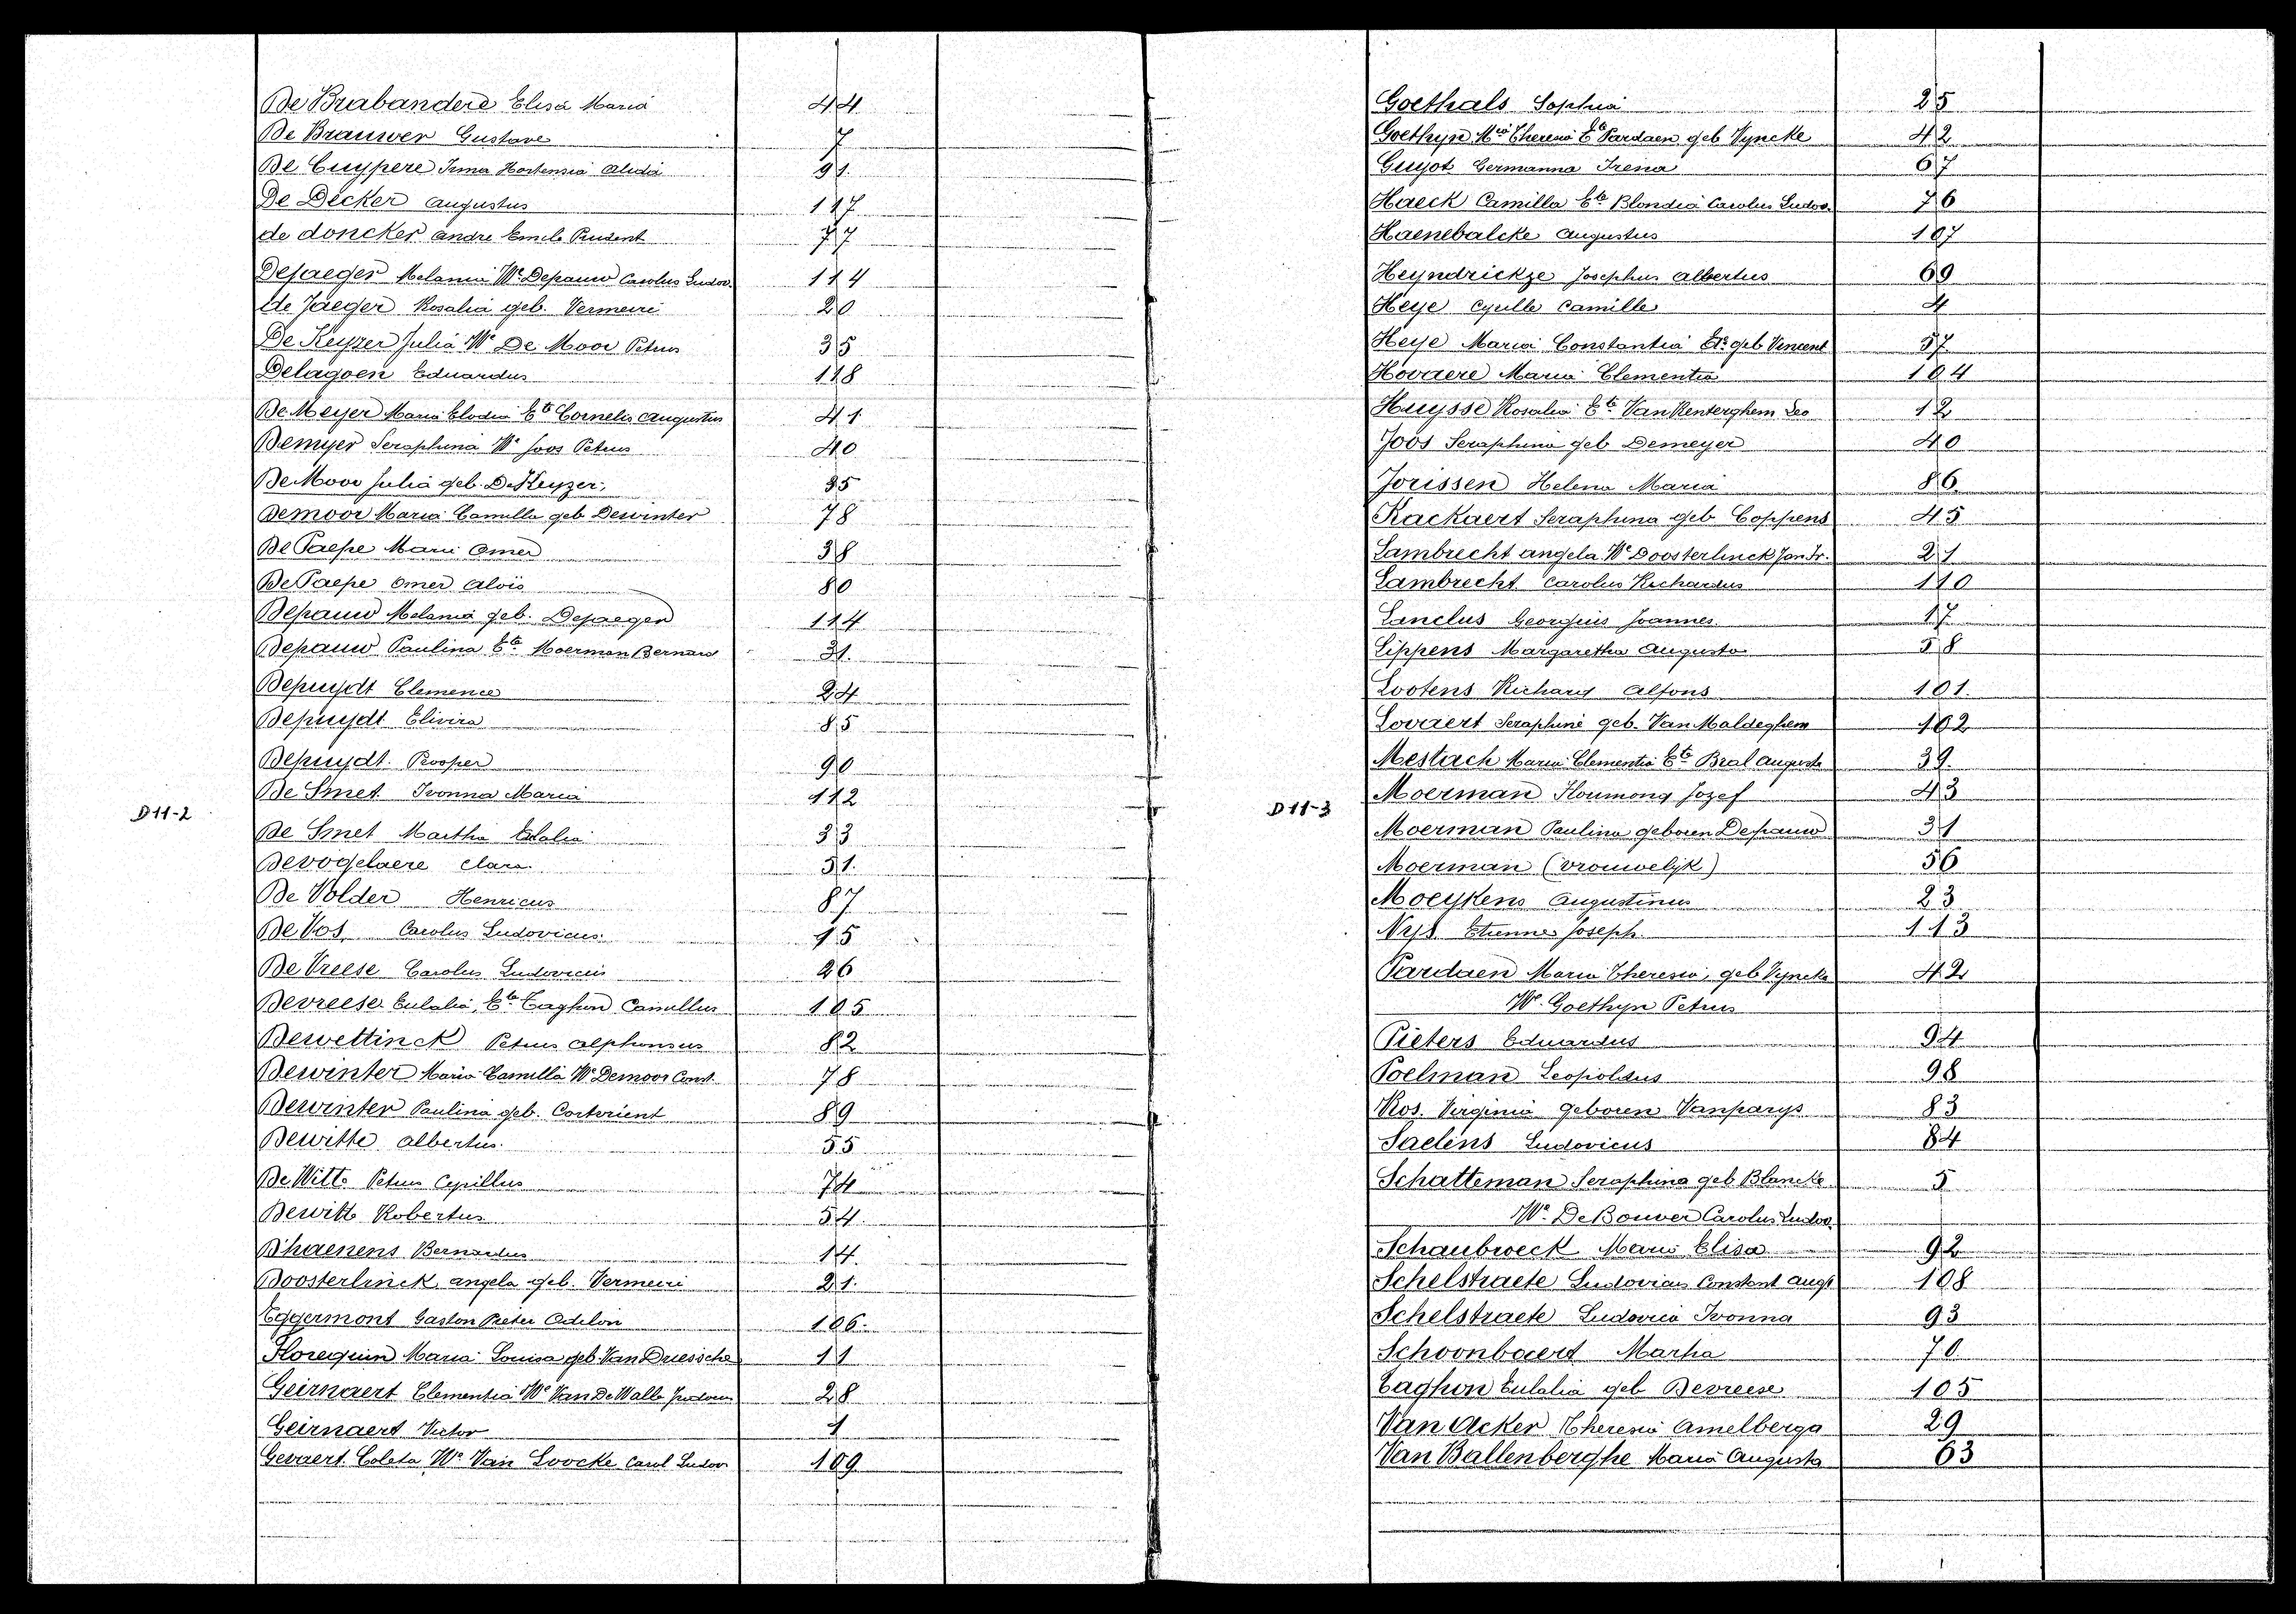 De Brabandere Elisa Maria 44
De Brauwer Gustave 7
De Cuypere Irma Hortensia Alida 91.
De Decker Augustus 117
de doncker Andre Emile Prudent 77
Dejaeger Melania We Depauw Carolus Ludov. 114
de Jaeger Rosalia geb. Vermeire 20
De Keyzer Julia We De Moor Petrus 35
Delagoen Eduardus 118
De Meyer Maria Elodia Ete Cornelis Augustus 41
Demyer Seraphina We Joos Petrus 40
De Moor Julia geb. De Keyzer. 35
Demoor Maria Camilla geb Dewinter 78
De Paepe Marie Omer 38
De Paepe Omer Aloïs 80
Depauw Melania geb. Dejaeger 114
Depauw Paulina Ete Moerman Bernard 31.
Depuydt Clemence 24
Depuydt Elivira 85
Depuydt. Prosper 90
De Smet Ivonna Maria 112
D 11-2
De Smet Martha Elalia 33
Devogelaere Clara. 51.
De Volder Henricus 87
De Vos Carolus Ludovicus. 15
De Vreese Carolus Ludovicus 26
Devreese Eulalia, Ete Taghon Camillus 105
Dewettinck Petrus Alphonsus 82
Dewinter Maria Camilla We Demoor Const. 78
Dewinter Paulina geb. Corterient 89
Dewitte Albertus. 55
De Witte Petrus Cyrillus 74
Dewitte Robertus 54.
D'haenens Bernardus 14.
Doosterlinck Angela geb. Vermeire 21.
Eggermont Gaston Pieter Odilon 106.
Florequin Maria Louisa geb. Van Driessche 11
Geirnaert Clementia We Van De Walle Judocus 28
Geirnaert Victor 1
Gevaert Coleta We Van Loocke Carol Ludov 109
Goethals Sophia 25
Goethyn Mia Theresia Ete Pardaen geb Vyncke 42
Guyot Germanna Irena 67
Haeck Camilla Ete Blondia Carolus Ludov. 76
Haenebalcke Augustus 107
Heyndrickze Josephus Albertus 69
Heye Cyrille Camille 4
Heye Maria Constantia Ete geb Vincent 57
Hovaere Maria Clementia 104
Huysse Rosalia Ete Van Renterghem Leo 12
Joos Seraphina geb Demeyer 40
Jorissen Helena Maria 86
Kackaert Seraphina geb Coppens 45
Lambrecht Angela We Doosterlinck Jan Fr. 21
Lambrecht Carolus Richardus 110
Lanclus Georgius Joannes 17
Lippens Margaretha Augusta 58
Lootens Richard Alfons 101.
Lovaert Seraphine geb. Van Maldeghem 102
Mestach Maria Clementia Ete Bral Auguste 39.
Moerman Floumong Jozef 43
D 11-3
Moerman Paulina geboren Depauw 31
Moerman (vrouwelijk) 56
Moeykens Augustinus 23
Nys Etienne Joseph. 113
Pardaen Maria Theresia, geb Vyncke 42
We Goethyn Petrus
Pieters Eduardus 94
Poelman Leopoldus 98
Ros. Virginia geboren Vanparys 83
Saelens Ludovicus 84
Schatteman Seraphina geb Blancke 5
We De Bouver Carolus Ludov.
Schaubroeck Maria Elisa 92
Schelstraete Ludovicus Constant Augt 108
Schelstraete Ludovica Ivonna 93
Schoonbaert Martha 70
Taghon Eulalia geb Devreese 105
Van Acker Theresia Amelberga 29
Van Ballenberghe Maria Augusta 63